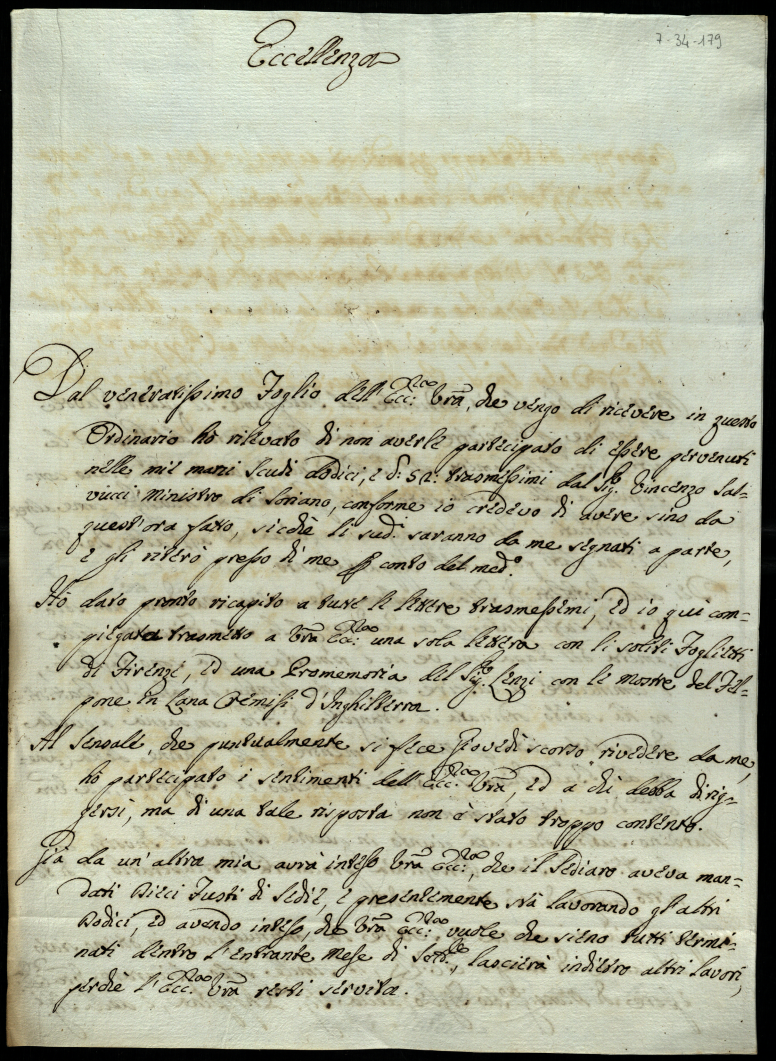 7-34-179
Eccellenza
Dal veneratissimo Foglio dell' Ecc:za Vrã, che vengo di ricevere in questo
Ordinario ho rilevato di non averle partecipato di essere pervenuti
nelle mie mani Scudi dodici, e d: 52: trasmessimi dal Sig.re Vincenzo Sal=
viucci Ministro di Soriano, conforme io credevo di avere sino da
quest'ora fatto, sicchè li sud.i saranno da me segnati a parte,
e gli riterò presso di me p conto del med.o
Hò dato pronto ricapito a tutte le lettere trasmessimi, ed io qui com=
piegata trasmetto a Vrã Ecc:za una sola lettera con li soliti Foglietti
di Firenze, ed una Promemoria del Sig.re Lenzi con le mostre del Fel=
pone in Lana Cremisi d'Inghilterra.
Al Sensale, che puntualmente si fece Giovedì scorso rivedere da me,
ho partecipato i sentimenti dell' Ecc:za Vrã, ed a chi debba dirig=
gersi, ma di una tale risposta non è stato troppo contento.
Già da un' altra mia avrà inteso Vrã Ecc:za, che il Sediaro aveva man=
dati Dieci Fusti di Sedie, e presentemente stà lavorando gl'altri
Dodici, ed avendo inteso, che Vrã Ecc:za vuole che sieno tutti termi=
nati dentro l'entrante Mese di Sett.bre, lascierà indietro altri lavori,
perchè l'Ecc:za Vrã resti servita.